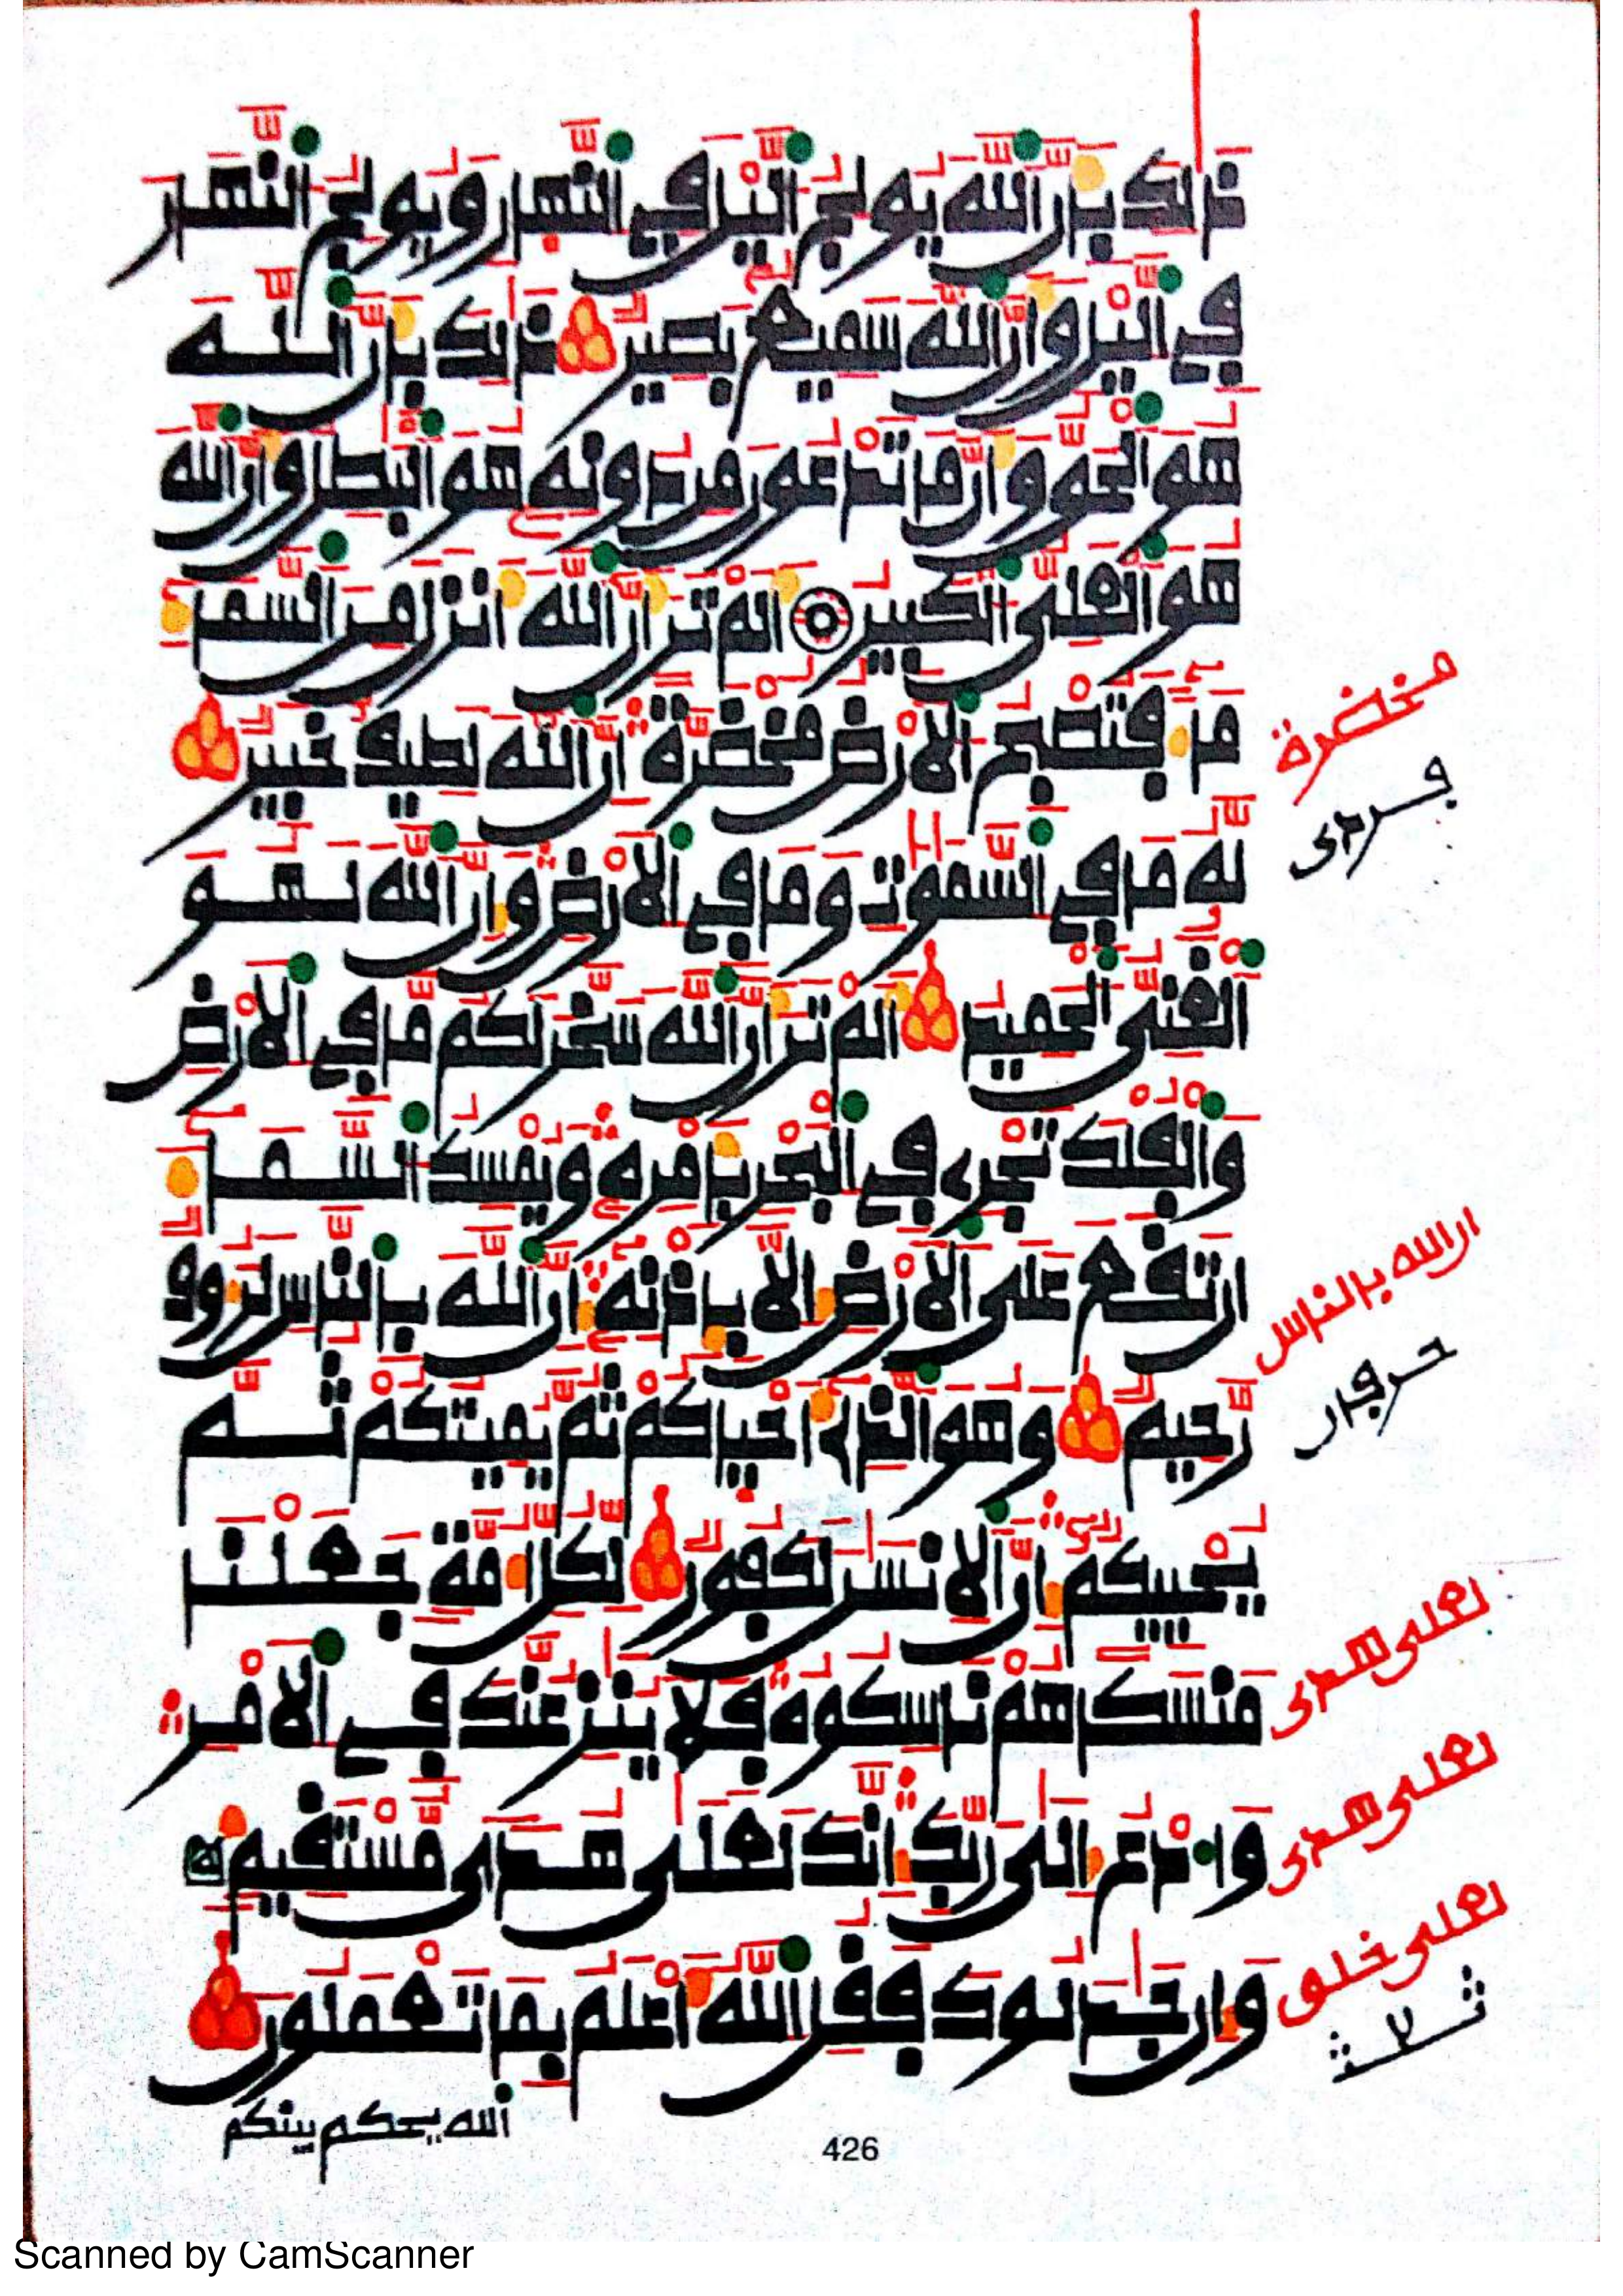 ذٰلك بأن الله يولج اليل في النهار ويولج النهار
في اليل وأن الله سميع بصير ذٰلك بأن الله
هو الحق وأن ما تدعون من دونه هو البٰطل وأن الله
هو العلي الكبير ألم تر أن الله أنزل من السما
ماء فتصبح الارض مخضرة إن الله لطيف خبير
له ما في السمٰوٰت وما في الارض وإن الله لهو
الغني الحميد ألم تر أن الله سخر لكم ما في الارض
والفلك تجري في البحر بأمره ويمسك السماء
ان تقع على الارض إلا بإذنه إن الله بالناس لرءوف
رحيم وهو الذي أحياكم ثم يميتكم ثم
يحييكم إن الانسٰن لكفور لكل أمة جعلنا
منسكا هم ناسكوه فلا ينٰزعنك في الامر
وادع إلى ربك إنك لعلى هدى مستقيم
وإن جٰدلوك فقل الله أعلم بما تعملون
الله يحكم بينكم
مخضرة
فردى
ان الله بالناس
حرفان
لعلى هدى
لعلى هدى
لعلى خلق
426
Scanned by CamScanner